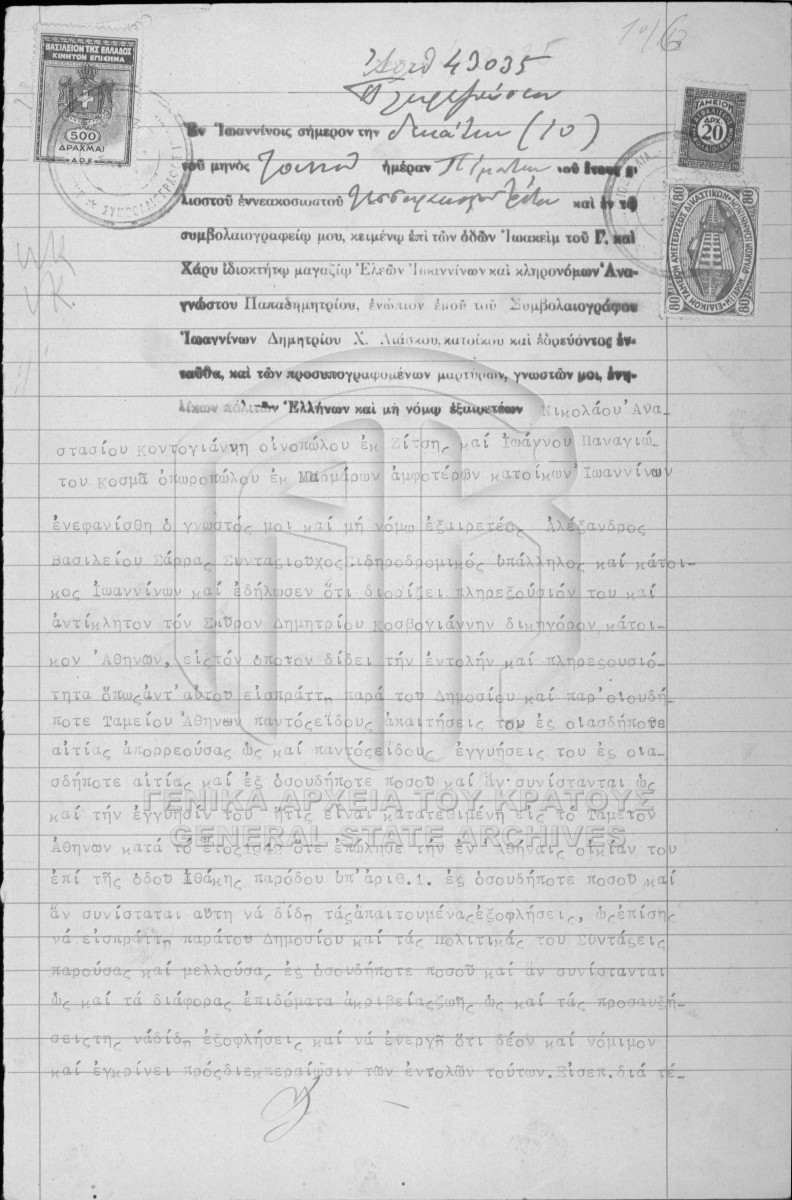 10/6
Ἀριθ 43035
Πληρεξούσιον
ΒΑΣΙΛΕΙΟΝ ΤΗΣ ΕΛΛΑΔΟΣ
ΚΙΝΗΤΟΝ ΕΠΙΣΗΜΑ
500
ΔΡΑΧΜΑΙ
ΤΑΜΕΙΟΝ
ΔΡΧ.
20
80 80
80 80
Ἐν Ἰωαννίνοις σήμερον την δεκάτην (10)
τοῦ μηνὸς ἡμέραν Πέμπτην τοῦ ἔτους χι-
λιοστοῦ ἐννεακοσιοστοῦ καὶ ἐν τῷ
συμβολαιογραφείῳ μου, κειμένῳ ἐπὶ τῶν ὁδῶν Ἰωακεὶμ τοῦ Γ. καὶ
Χάρυ ἰδιοκτήτῳ μαγαζίῳ Ἐλεῶν Ἰωαννίνων καὶ κληρονόμων Ἀνα-
γνώστου Παπαδημητρίου, ἐνώπιον ἐμοῦ τοῦ Συμβολαιογράφου
Ἰωαννίνων Δημητρίου Χ. Λιάσκου, κατοίκου καὶ ἑδρεύοντος ἐν-
ταῦθα, καὶ τῶν προσυπογραφομένων μαρτύρων, γνωστῶν μοι, ἐνη-
λίκων πολιτῶν Ἑλλήνων καὶ μὴ νόμῳ ἐξαιρετέων Νικολάου Ἀνα-
στασίου Κοντογιάννη οἰνοπώλου ἐκ Ζίτσης καί Ἰωάννου Παναγιώ-
του Κοσμᾶ ὀπωροπώλου ἐκ Μαρμάρων ἀμφοτέρων κατοίκων Ἰωαννίνων
ἐνεφανίσθη ὁ γνωστός μοι καί μή νόμω ἐξαιρετέος Ἀλέξανδρος
Βασιλείου Σάρρας Συνταξιοῦχος Σιδηροδρομικός ὑπάλληλος καί κάτοι-
κος Ἰωαννίνων καί ἐδήλωσεν ὅτι διορίζει πληρεξούσιόν του καί
ἀντίκλητον τόν Σπῦρον Δημητρίου Κοσβογιάννην δικηγόρον, κάτοι-
κον Ἀθηνῶν, εἰςτόν ὁποῖον δίδει τήν ἐντολήν καί πληρεξουσιό-
τητα ὅπωςἀντ'αὐτοῦ εἰσπράττη παρά τοῦ Δημοσίου καί παρ'οἱουδή-
ποτε Ταμείου Ἀθηνῶν παντόςεἴδους ἀπαιτήσεις του ἐξ οἱασδήποτε
αἰτίας ἀπορρεούσας ὡς καί παντόςεἴδους ἐγγυήσεις του ἐξ οἱα-
σδήποτε αἰτίας καί ἐξ ὁσουδήποτε ποσοῦ καί ἄν συνίστανται ὡς
καί τήν ἐγγύησίν του ἥτις εἶναι κατατεθιμένη εἰς τό Ταμεῖον
Ἀθηνῶν κατά τό ἔτος1942 ὅτε ἐπώλησε τήν ἐν Ἀθήναις οἰκίαν του
ἐπί τῆς ὁδοῦ Ἰθάκης παρόδου ὑπ'ἀριθ.1. ἐξ ὁσουδήποτε ποσοῦ καί
ἄν συνίσταται αὕτη νά δίδη τάςἀπαιτουμέναςἐξοφλήσεις, ὡςἐπίσης
νά εἰσπράττη παράτοῦ Δημοσίου καί τάς Πολιτικάς του Συντάξεις
παρούσας καί μελλούσας ἐξ ὁσουδήποτε ποσοῦ καί ἄν συνίστανται
ὡς καί τά διάφορα ἐπιδόματα ἀκριβείαςζωῆς ὡς καί τάς προσαυξή-
σειςτης νάδίδη ἐξοφλήσεις καί νά ἐνεργῆ ὅτι δέον καί νόμιμον
καί ἐγκρίνει πρόςδιεκπεραίωσιν τῶν ἐντολῶν τούτων.Εἰσεπ.διά τέ-
ΓΕΝΙΚΑ ΑΡΧΕΙΑ ΤΟΥ ΚΡΑΤΟΥΣ
GENERAL STATE ARCHIVES